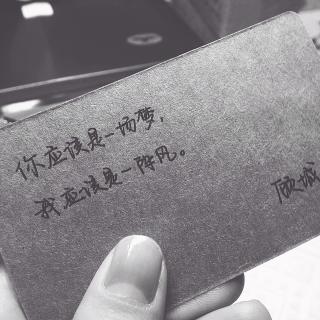 你应该是一场梦，
我应该是一阵风。
顾城